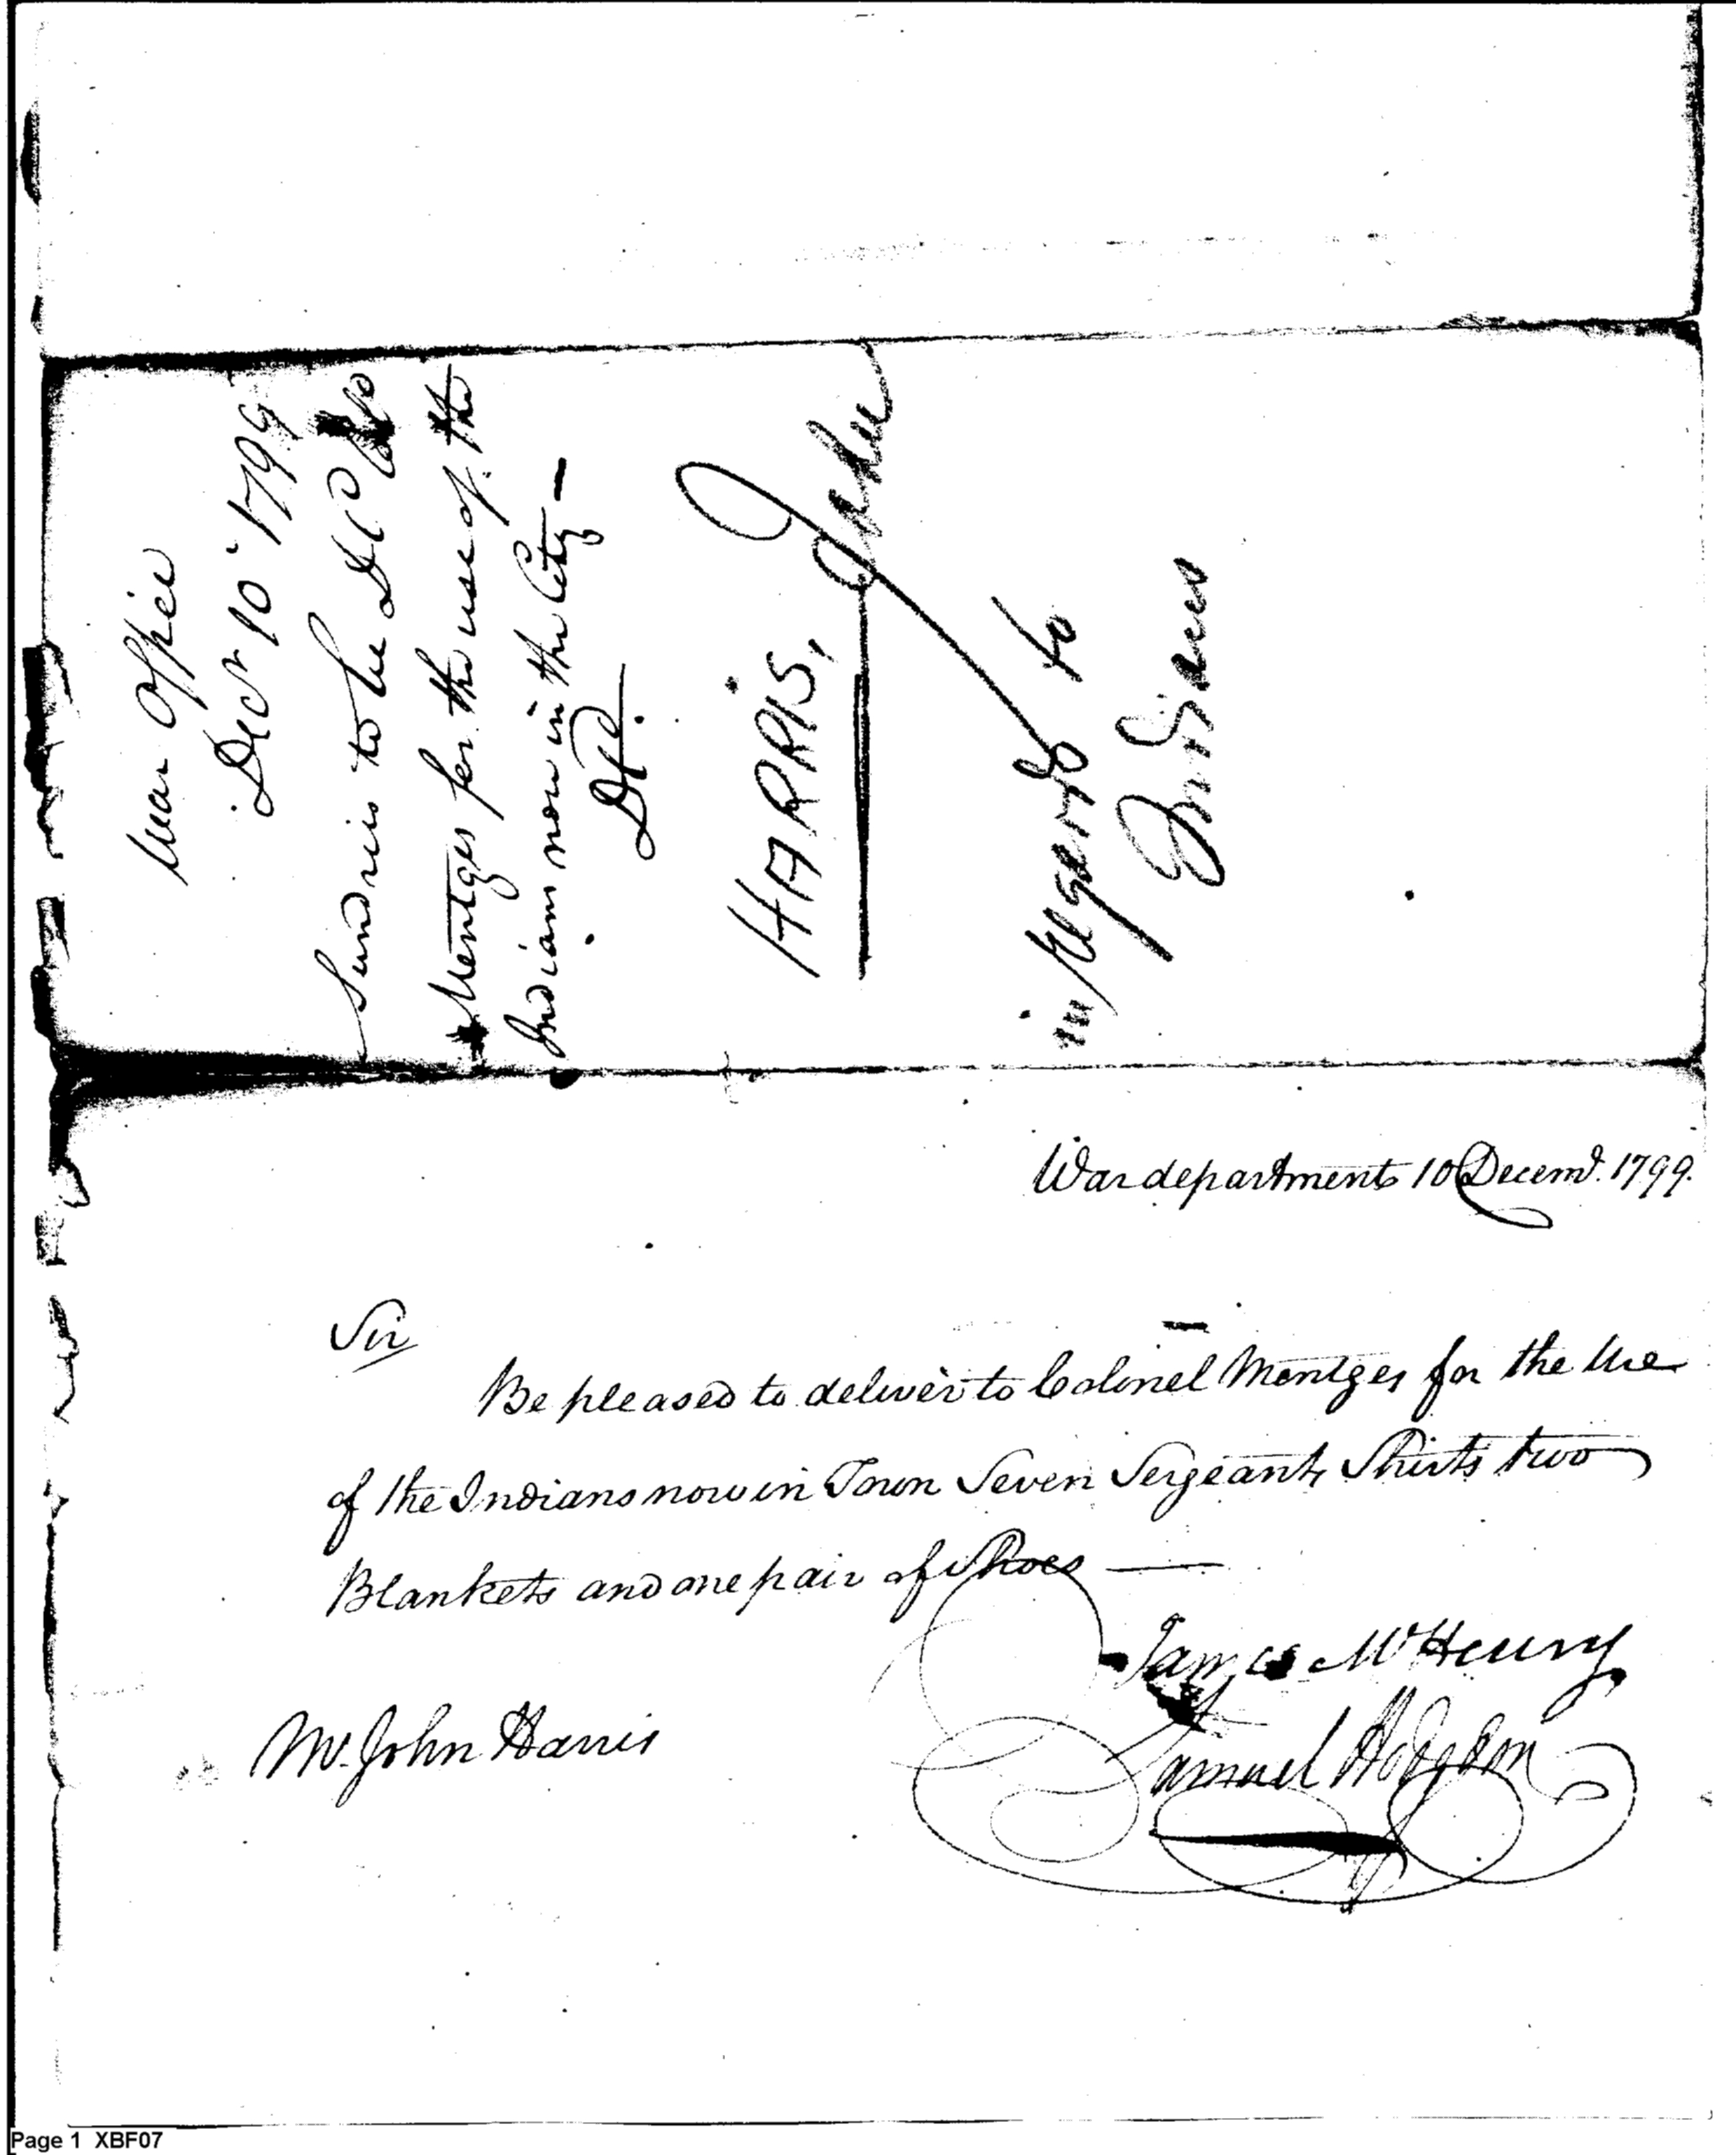 War Office
Decr 10 1799
Sundries to be Dd Col
Mentges for the use of the
Indians now in the City —
HARRIS, John
in regard to
Indians
War department 10 Decemr. 1799.
Sir
Be pleased to deliver to Colonel Mentges for the Use
of the Indians now in Town Seven Sergeants Shirts two
Blankets and one pair of Shoes —
James McHenry
Samuel Hodgdon
Mr. John Harris
Page 1 XBF07